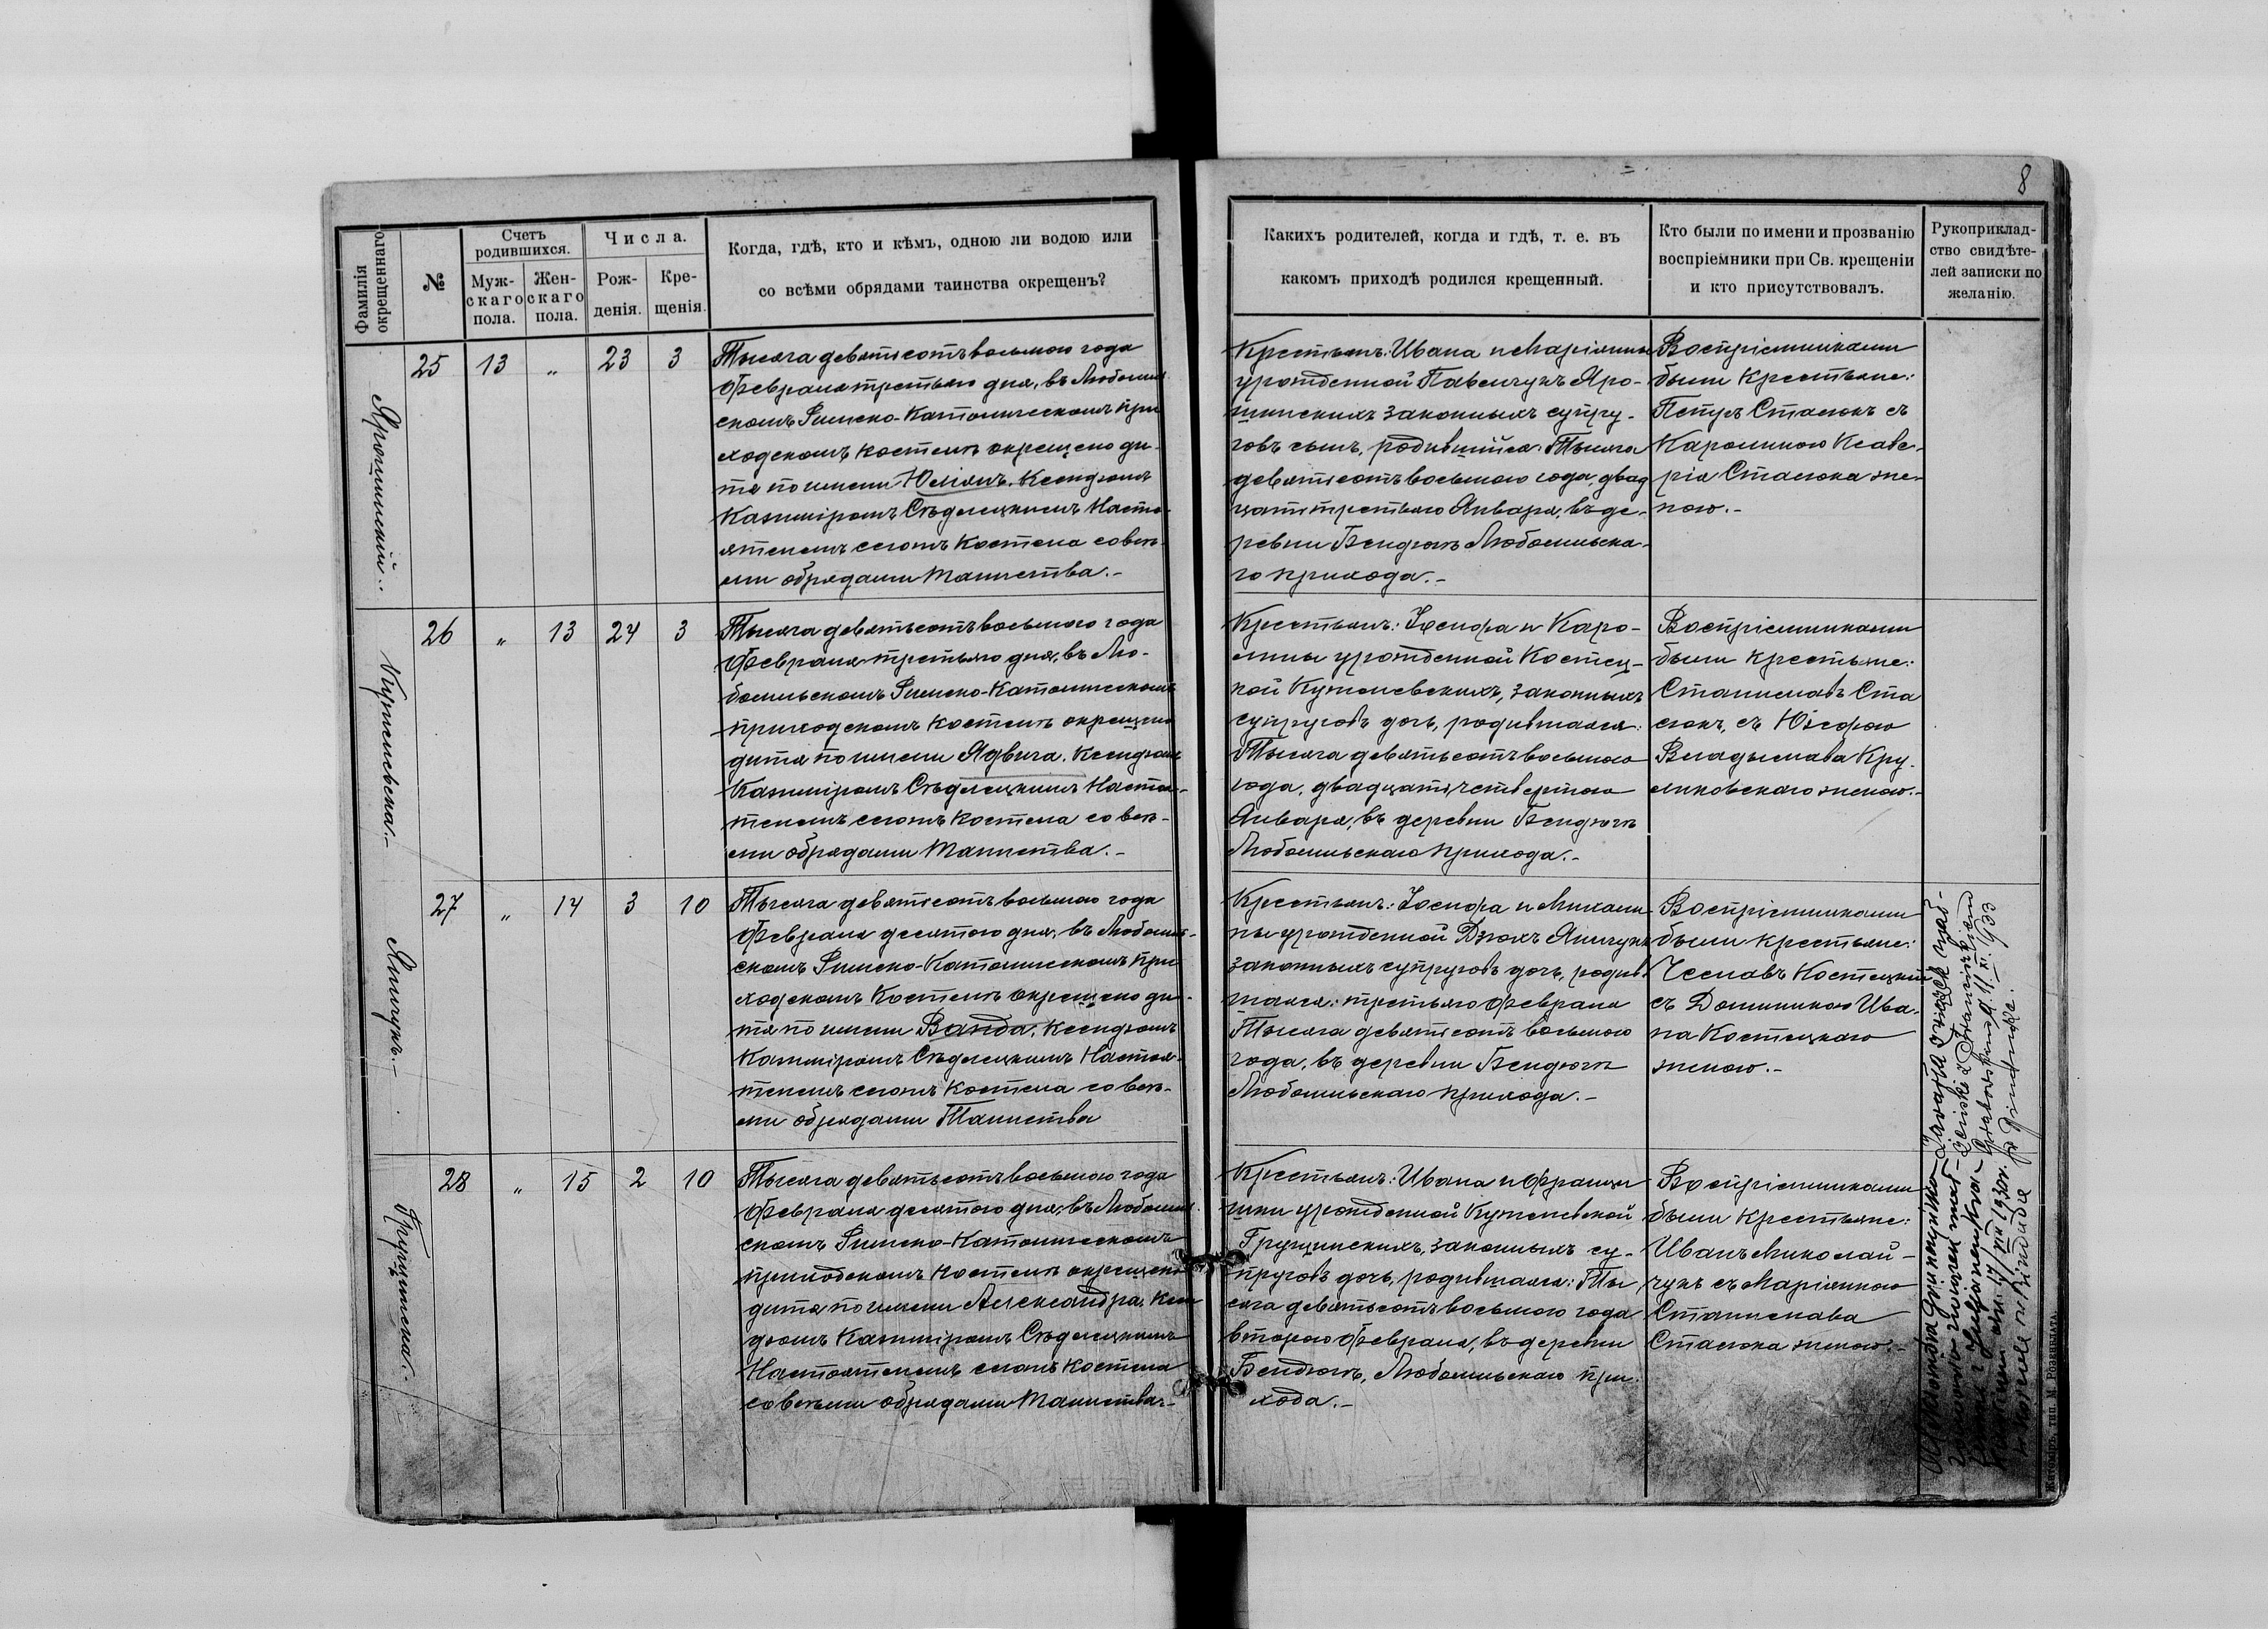 8
Фамилія окрещеннаго
№
Счетъ родившихся.
Муж-
скаго
пола.
Жен-
скаго
пола.
Числа.
Рож-
денія.
Кре-
щенія.
Когда, гдѣ, кто и кѣмъ, одною ли водою или
со всѣми обрядами таинства окрещенъ?
Какихъ родителей, когда и гдѣ, т. е. въ
какомъ приходѣ родился крещенный.
Кто были по имени и прозванію
воспріемники при Св. крещеніи
и кто присутствовалъ.
Рукоприклад-
ство свидѣте-
лей записки по
желанію.
25 13 „ 23 3
Тысяча девятьсотъ восьмого года
Февраля третьяго дня, въ Любомль-
скомъ Римско-Католическомъ при
ходскомъ костелѣ окрещено ди-
тя по имени Юліянъ. Ксендзомъ
Казиміромъ Сѣдлецкимъ Насто-
ятелемъ сегожъ Костела со всѣ-
ми обрядами Таинства.-
Крестьянъ: Ивана и Маріянны
урожденной Павлчукъ Яро-
щинскихъ законныхъ супру-
говъ сынъ, родившійся: Тысяча
девятьсотъ восьмого года, двад
цать третьяго Января, въ де-
ревни Бендюгѣ Любомльска-
го прихода.-
Воспріемниками
были Крестьяне:
Петръ Стасюкъ съ
Каролиною Ксаве-
рія Стасюка же-
ною.-
Купчевская.-
26 „ 13 24 3
Тысяча девятьсотъ восьмого года
Февраля третьяго дня, въ Лю-
бомльскомъ Римско-Католическомъ
приходскомъ костелѣ окрещено
дитя по имени Ядвига. Ксендзомъ
Казиміромъ Сѣдлецкимъ Настоя-
телемъ сегожъ Костела со всѣ-
ми обрядами Таинства.-
Крестьянъ: Іосифа и Каро-
лины урожденной Костец-
кой Кужелевскихъ, законныхъ
супруговъ дочь, родившаяся:
Тысяча девятьсотъ восьмого
года, двадцать четвертого
Января, въ деревни Бендюгѣ
Любомльскаго прихода.-
Воспріемниками
были Крестьяне:
Станиславъ Ста
сюкъ, съ Юзефою
Владыслава Кру-
ликовскаго женою.-
Янчукъ.-
27 „ 14 3 10
Тысяча девятьсотъ восьмого года
Февраля десятого дня, въ Любомль-
скомъ Римско-Католическомъ при
ходскомъ Костелѣ окрещено ди-
тя по имени Ванда. Ксендзомъ
Казиміромъ Сѣдлецкимъ Настоя-
телемъ сегожъ Костела со всѣ-
ми обрядами Таинства
Крестьянъ: Іосифа и Михали-
ны урожденной Дзюхъ Янчукъ
законныхъ супруговъ дочь, родив-
шаяся: третьяго Февраля
Тысяча девятьсотъ восьмого
года, въ деревни Бендюгѣ
Любомльскаго прихода.-
Воспріемниками
были крестьяне:
Чеславъ Костецкій
съ Доминикою Ива-
на Костецкаго
женою.-
28 „ 15 2 10
Тысяча девятьсотъ восьмого года
Февраля десятого дня, въ Любомль-
скомъ Римско-Католическомъ
приходскомъ костелѣ окрещено
дитя по имени Александра. Ксен
дзомъ Казиміромъ Сѣдлецкимъ
Настоятелемъ сегожъ Костела
со всѣми обрядами Таинства.-
Крестьянъ: Ивана и Францы
шки урожденной Кужелевской
Грущинскихъ, законныхъ су-
пруговъ дочь, родившаяся: Ты
сяча девятьсотъ восьмого года
второго Февраля, въ деревни
Бендюгѣ, Любомльскаго при-
хода.-
Воспріемниками
были Крестьяне:
Иванъ Миколай-
чукъ съ Маріянною
Станислава
Стасюка женою.-
Житоміръ, тип. М. Розенблата.